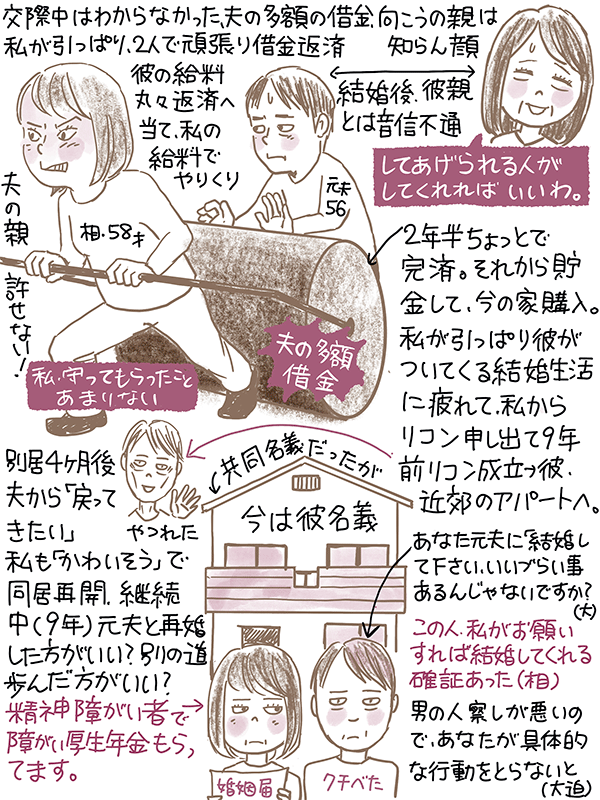 交際中はわからなかった、夫の多額の借金、向こうの親は
私が引っぱり、2人で頑張り借金返済 知らん顔
彼の給料
丸々返済へ
当て、私の
給料で
やりくり
結婚後、彼親
とは音信不通
してあげられる人が
してくれればいいわ。
元夫
56
相・58才
夫の親
許せない!
夫の多額
借金
私、守ってもらったこと
あまりない
2年半ちょっとで
完済。それから貯
金して、今の家購入。
私が引っぱり彼が
ついてくる結婚生活
に疲れて、私から
リコン申し出て9年
前リコン成立⇒彼、
近郊のアパートへ。
別居4ヶ月後
夫から「戻って
きたい」
やつれた
私も「かわいそう」で
同居再開、継続
中(9年)元夫と再婚
した方がいい?別の道
歩んだ方がいい?
精神障がい者で→
障がい厚生年金もらっ
てます。
共同名義だったが
今は彼名義
婚姻届
クチべた
あなた元夫に「結婚し
て下さい、いいづらい事
あるんじゃないですか?
(大)
この人、私がお願い
すれば結婚してくれる
確証あった(相)
男の人察しが悪いの
で、あなたが具体的
な行動をとらないと
(大迫)